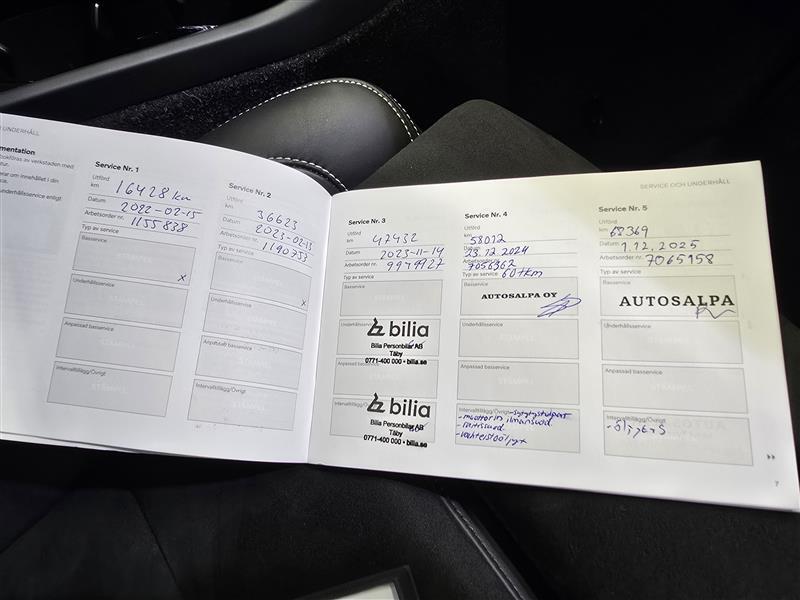 UNDERHÅLL
mentation
bokföras av verkstaden med
tur.
erar om innehållet i din
underhållsservice enligt
Service Nr. 1
Utförd
km
16428 km
Datum
2022-02-15
Arbetsorder nr.
1155838
Typ av service
Basservice
x
Underhållsservice
Anpassad basservice
Intervalltillägg/Övrigt
Service Nr. 2
Utförd
km
36623
Datum
2023-02-13
Arbetsorder nr.
1190753
Typ av service
Basservice
x
Underhållsservice
Anpassad basservice
Intervalltillägg/Övrigt
Service Nr. 3
Utförd
km
47432
Datum
2023-11-14
Arbetsorder nr.
9949927
Typ av service
Basservice
Underhållsservice
bilia
Bilia Personbilar AB
Täby
0771-400 000 • bilia.se
Anpassad basservice
Intervalltillägg/Övrigt
bilia
Bilia Personbilar AB
Täby
0771-400 000 • bilia.se
SERVICE OCH UNDERHÅLL
Service Nr. 4
Utförd
km
58012
Datum
23.12.2024
Arbetsorder nr.
7056362
Typ av service
60tkm
Basservice
AUTOSALPA OY
Underhållsservice
Anpassad basservice
Intervalltillägg/Övrigt
- sytytystulpat
- moottorin ilmansuod
- raitissuod
- vaihteistoöljyt
Service Nr. 5
Utförd
km
68369
Datum
1.12.2025
Arbetsorder nr.
7065158
Typ av service
Basservice
AUTOSALPA
Underhållsservice
Anpassad basservice
Intervalltillägg/Övrigt
7